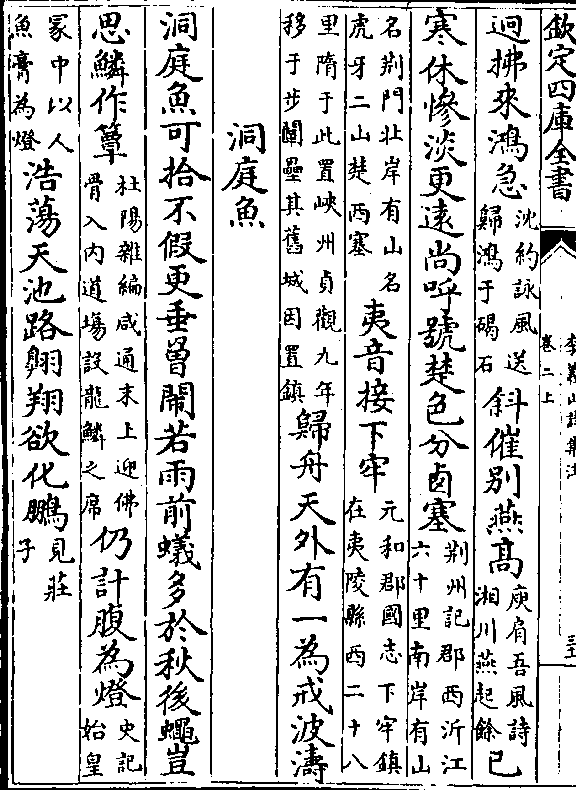 欽定四庫全書
李義山詩集注
卷二上
迥拂來鴻急沈約詠風送歸鴻于碣石斜催別燕高庾肩吾風詩湘川燕起餘已
寒休慘淡更遠尚呼號楚色分卤塞荆州記郡西沂江六十里南岸有山
名荆門北岸有山名虎牙二山楚西塞夷音接下牢元和郡國志下牢鎮在夷陵縣西二十八
里隋于此置峽州貞觀九年移于步闡壘其舊城因置鎮歸舟天外有一為戒波濤
洞庭魚
洞庭魚可拾不假更垂罾鬧若雨前蟻多於秋後蠅豈
思鱗作簟杜陽雜編咸通末上迎佛骨入内道場設龍鱗之席仍計腹為燈史記始皇
冢中以人魚膏為燈浩蕩天池路翱翔欲化鵬見莊子